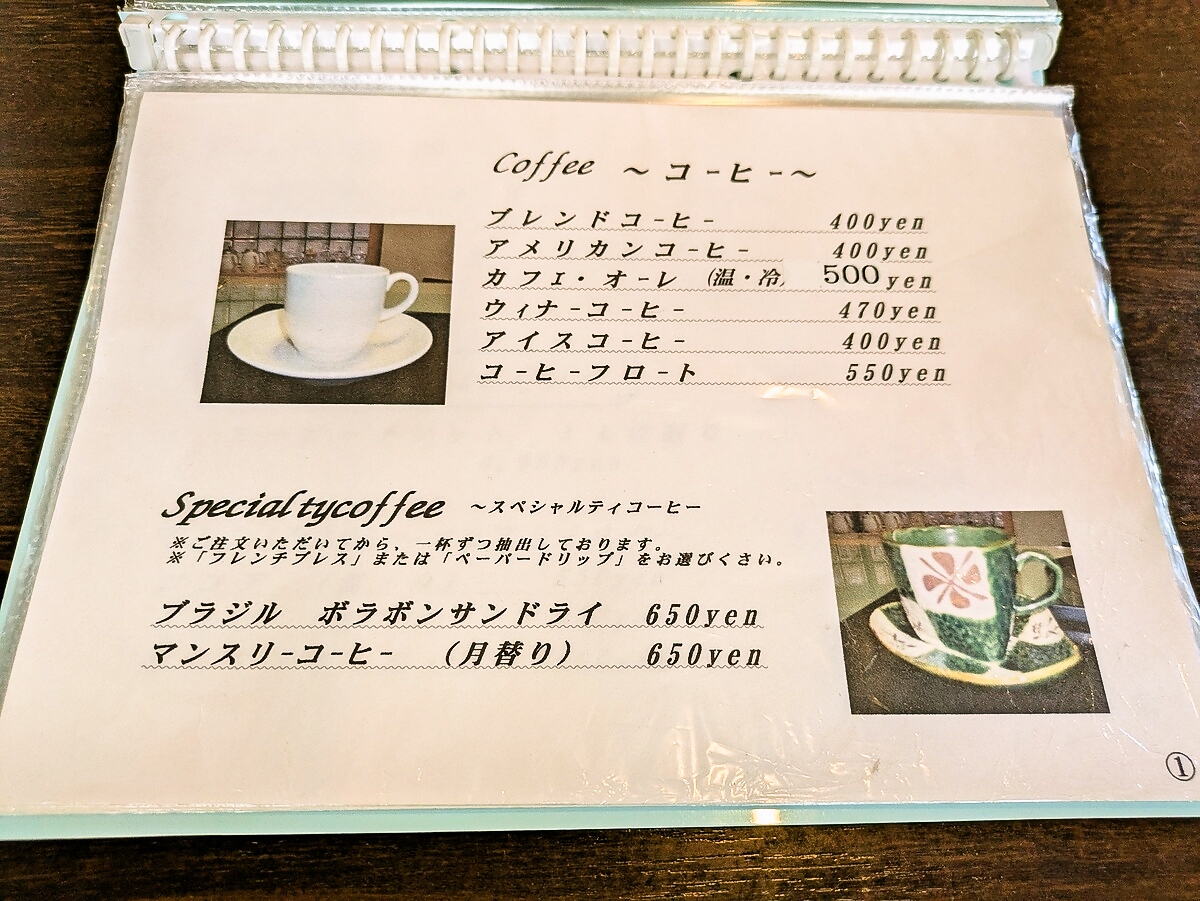 Coffee ～コーヒー～
ブレンドコーヒー 400yen
アメリカンコーヒー 400yen
カフェ・オーレ (温・冷) 500yen
ウィナーコーヒー 470yen
アイスコーヒー 400yen
コーヒーフロート 550yen
Specialtycoffee ～スペシャルティコーヒー
※ご注文いただいてから、一杯ずつ抽出しております。
※「フレンチプレス」または「ペーパードリップ」をお選びください。
ブラジル ボラボンサンドライ 650yen
マンスリーコーヒー (月替り) 650yen
①